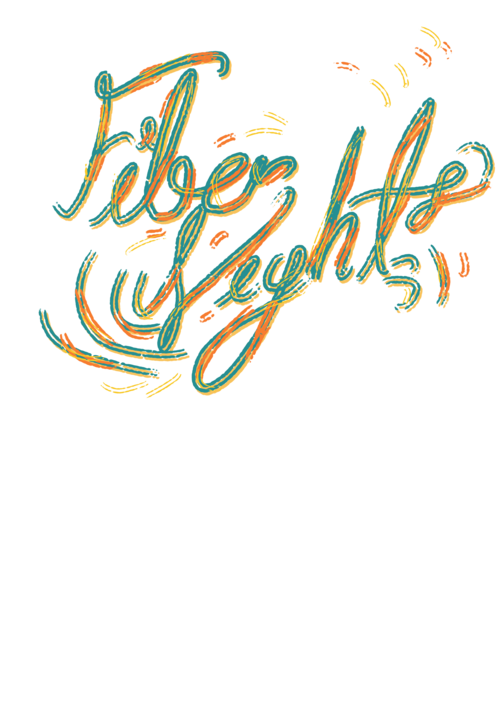 Fiber
Lights